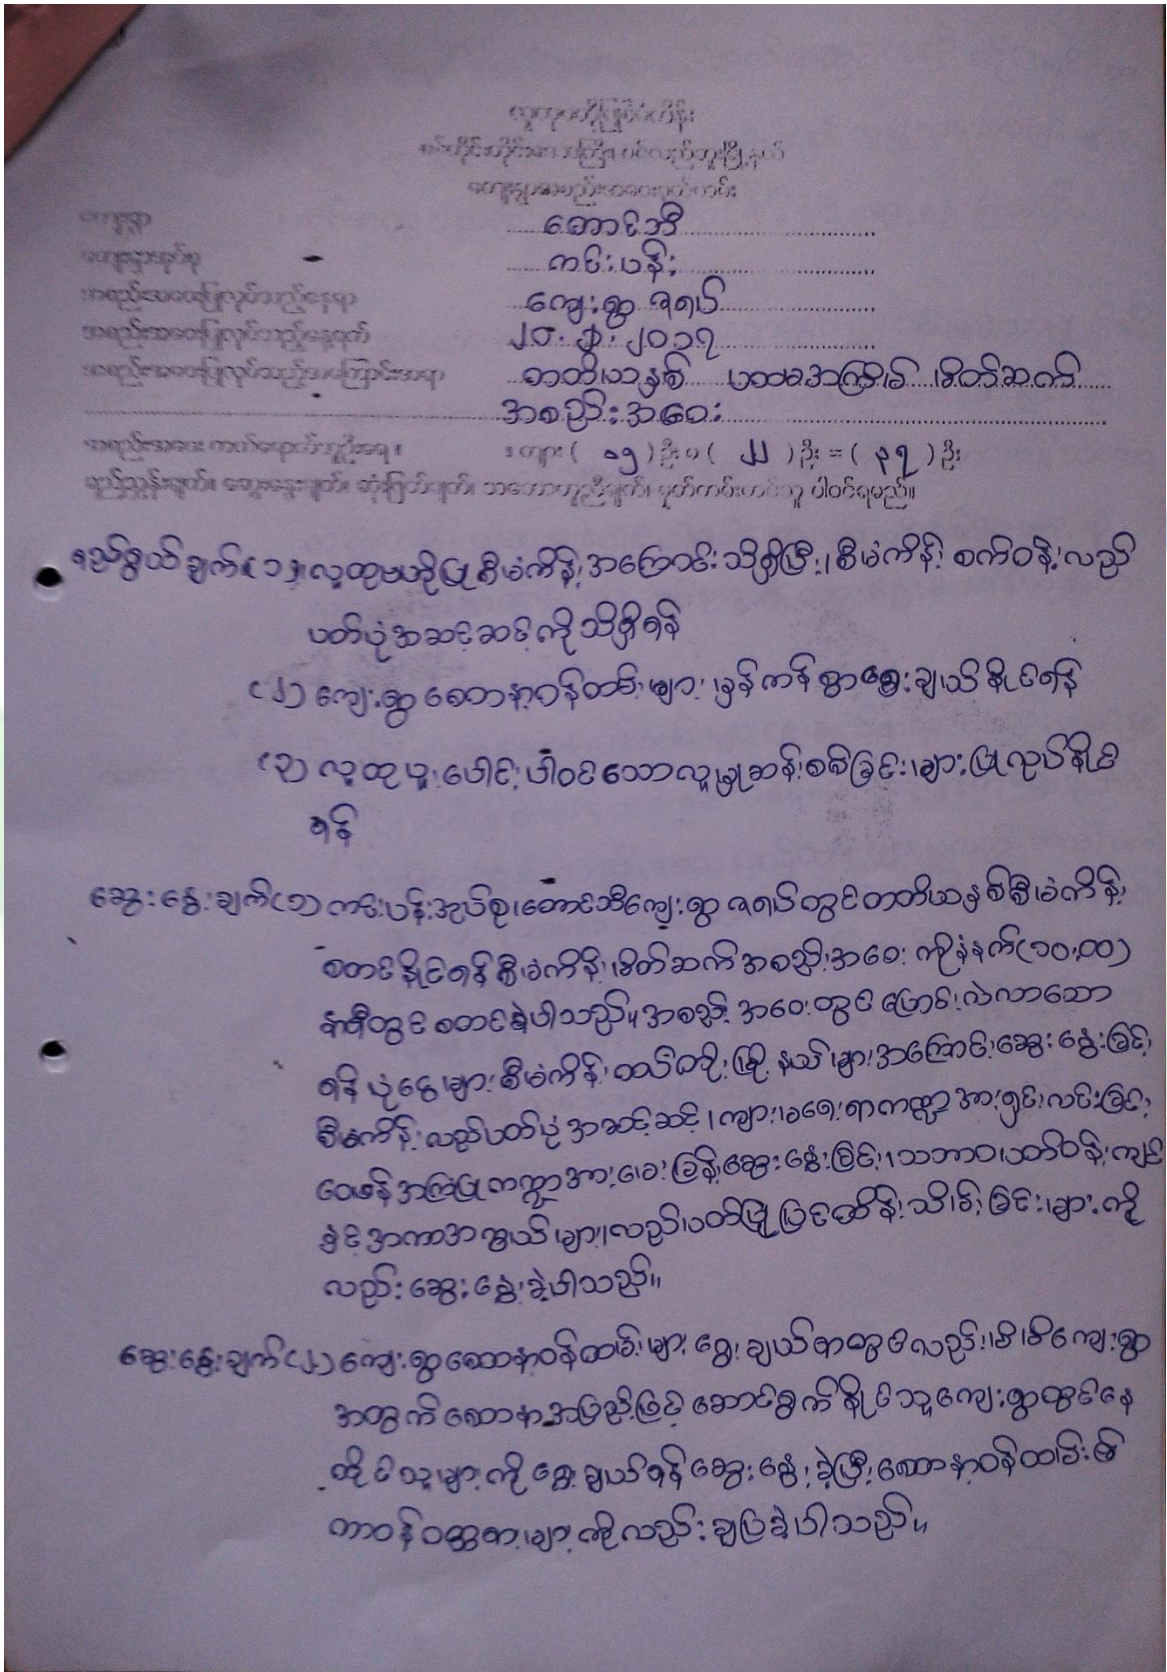 လူထုဗဟိုပြုစီမံကိန်း
စစ်ကိုင်းတိုင်းဒေသကြီး၊ ပင်လည်ဘူးမြို့နယ်
ကျေးရွာအစည်းအဝေးမှတ်တမ်း
ကျေးရွာ တောင်သီ
ကျေးရွာအုပ်စု ကင်းပန်း
အစည်းအဝေးပြုလုပ်သည့်နေရာ ကျေးရွာ ဇရပ်
အစည်းအဝေးပြုလုပ်သည့်နေ့ရက် ၂၀၁၇
အစည်းအဝေးပြုလုပ်သည့်အကြောင်းအရာ တတိယနှစ် ပထမအကြိမ် မိတ်ဆက်
အစည်းအဝေး
အစည်းအဝေး တက်ရောက်သူဦးရေ ။ ကျား ( ၁၅ ) ဦး မ ( ၂၂ ) ဦး = ( ၃၇ ) ဦး
ရည်ညွှန်းချက်၊ ဆွေးနွေးချက်၊ ဆုံးဖြတ်ချက်၊ သဘောတူညီချက်၊ မှတ်တမ်းတင်သူ ပါဝင်ရမည်။
ရည်ရွယ်ချက် (၁)၊ လူထုဗဟိုပြုစီမံကိန်းအကြောင်း သိရှိပြီး၊ စီမံကိန်း စက်ဝန်းလည်
ပတ်ပုံအဆင့်ဆင့်ကို သိရှိရန်
(၂) ကျေးရွာ စေတနာ့ဝန်ထမ်းများ မှန်ကန်စွာရွေးချယ်နိုင်ရန်
(၃) လူထုပူးပေါင်းပါဝင်သောလူမှုဆန်းစစ်ခြင်းများပြုလုပ်နိုင်
ရန်
ဆွေးနွေးချက် (၁) ကင်းပန်းအုပ်စု၊ တောင်သီကျေးရွာ ဇရပ်တွင် တတိယနှစ်စီမံကိန်း
စတင်နိုင်ရန် စီမံကိန်း မိတ်ဆက် အစည်းအဝေး ကို နံနက် (၁၀:၀၀)
နာရီတွင် စတင်ခဲ့ပါသည်။ အစည်းအဝေးတွင် ပြောင်းလဲလာသော
ရန်ပုံငွေများ စီမံကိန်း တပ်တိုးမြို့နယ်များအကြောင်းဆွေးနွေးခြင်း၊
စီမံကိန်းလည်ပတ်ပုံ အဆင့်ဆင့်၊ ကျား၊မရေးရာကဏ္ဍအားရှင်းလင်းခြင်း၊
ဝေဖန်အကြံပြုကဏ္ဍအား မေးမြန်းဆွေးနွေးခြင်း၊ သဘာဝပတ်ဝန်းကျင်
နှင့် အကာအကွယ်များ၊ လည်ပတ်ပြုပြင်ထိန်းသိမ်းခြင်းများကို
လည်းဆွေးနွေးခဲ့ပါသည်။
ဆွေးနွေးချက် (၂) ကျေးရွာစေတနာ့ဝန်ထမ်းများ ရွေးချယ်ရာတွင်လည်း၊ မိမိကျေးရွာ
အတွက် စေတနာအပြည့်ဖြင့် ဆောင်ရွက်နိုင်သူ ကျေးရွာတွင်နေ
ထိုင်သူများကို ရွေးချယ်ရန် ဆွေးနွေးခဲ့ပြီး စေတနာ့ဝန်ထမ်း၏
တာဝန်ဝတ္တရားများကိုလည်း ချပြခဲ့ပါသည်။